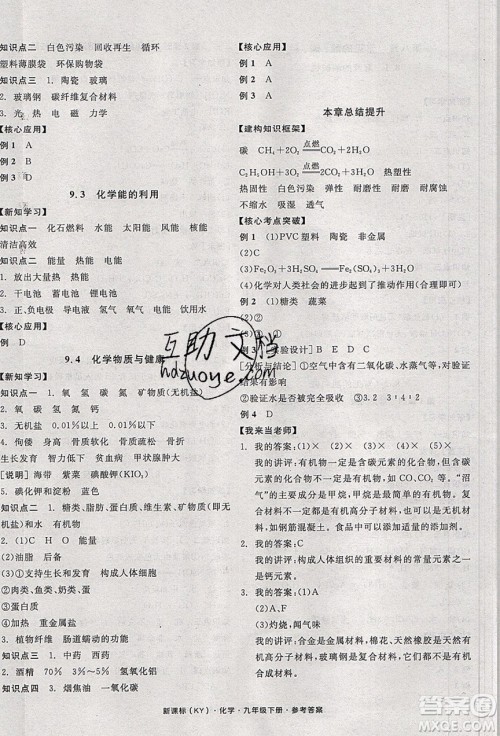 知识点二 白色污染 回收再生 循环
塑料薄膜袋 环保购物袋
知识点三 1. 陶瓷 玻璃
2. 玻璃钢 碳纤维复合材料
3. 光 热 电 磁 力学
【核心应用】
例1 A
例2 B
例3 D
9.3 化学能的利用
【新知学习】
知识点一 化石燃料 水能 太阳能 风能
清洁高效
知识点二 能量 热能 电能
1. 放出大量热 热能
2. 干电池 蓄电池 燃料电池
3. 电池 导线 电能 氢气 氧气 电能 饮用水
【核心应用】
例 D
9.4 化学物质与健康
【新知学习】
知识点一 1. 氧 氢 碳 氮 矿物质(无机盐)
2. 氧 碳 氢 氮 钙
3. 无机盐 0.01%以上 0.01%以下
4. 佝偻 身高 骨质软化 骨质疏松
生长发育 智力 甲状腺 贫血病
[说明] 海带 紫菜 碘酸钾(KIO₃)
5. 碘化钾和淀粉 蓝
知识点二 1. 糖类、油脂、蛋白质、维生素、矿物质(无
机盐)和水 水 有机物
2. (1)C H O 能量
(2)油脂 后备
(3)生长发育 构成人体细胞
(4)①肉类、鱼类、奶类、蛋类
②面食类
3. 植物纤维 肠道蠕动的功能
知识点三 1. 中药 西药
2. 酒精 75% 5% 氢氧化铝
知识点四 1. 烟焦油 一氧化碳
【核心应用】
例1 A
例2 A
本章总结提升
【建构知识框架】
碳 CH₄+2O₂ 点燃 CO₂+2H₂O
C₂H₅OH+3O₂ 点燃 2CO₂+3H₂O
热固性 白色污染 弹性 耐磨 耐磨
不吸水 易燃 耐磨 耐腐蚀
【核心考点突破】
例1 (1)PVC塑料 陶瓷 非金属
(2)C
(3)Fe₂O₃+3H₂SO₄══Fe₂(SO₄)₃+3H₂O
(4)化学对人类社会的进步起到了推动作用(合理即可)
例2 (1)糖类 蔬菜
(2)②
(3)①
[分析与结论] ①空气中含有二氧化碳、水蒸气等,对验证
结果有影响
②验证水是否完全吸收 ③3.2 3∶4∶2
例4 D
【我来当老师】
1. 我的答案:(1)× (2)× (3)× (4)×
我的讲评:有机物一定是含碳元素的化合物,但含碳元
素的化合物不一定是有机物,如CO、CO₂等。“沼
气”的主要成分是甲烷,甲烷是有机物。有机物一般能
燃烧,但也有不能燃烧的,如CCl₄等。
2. 我的答案:C
我的讲评:构成人体组织的重要材料的元素是人体常
量元素,如钙元素。
3. 我的答案:(1)A
(2)①③
(3)灼烧,闻气味
我的讲评:不锈钢属于金属材料,棉花、天然橡胶属于天
然有机高分子材料,涤纶、尼龙、电木、聚乙烯塑料属于有
机合成高分子材料。
新课标(KY)·化学·九年级下册·参考答案
互助文档
hdzuoye.com
答案圈